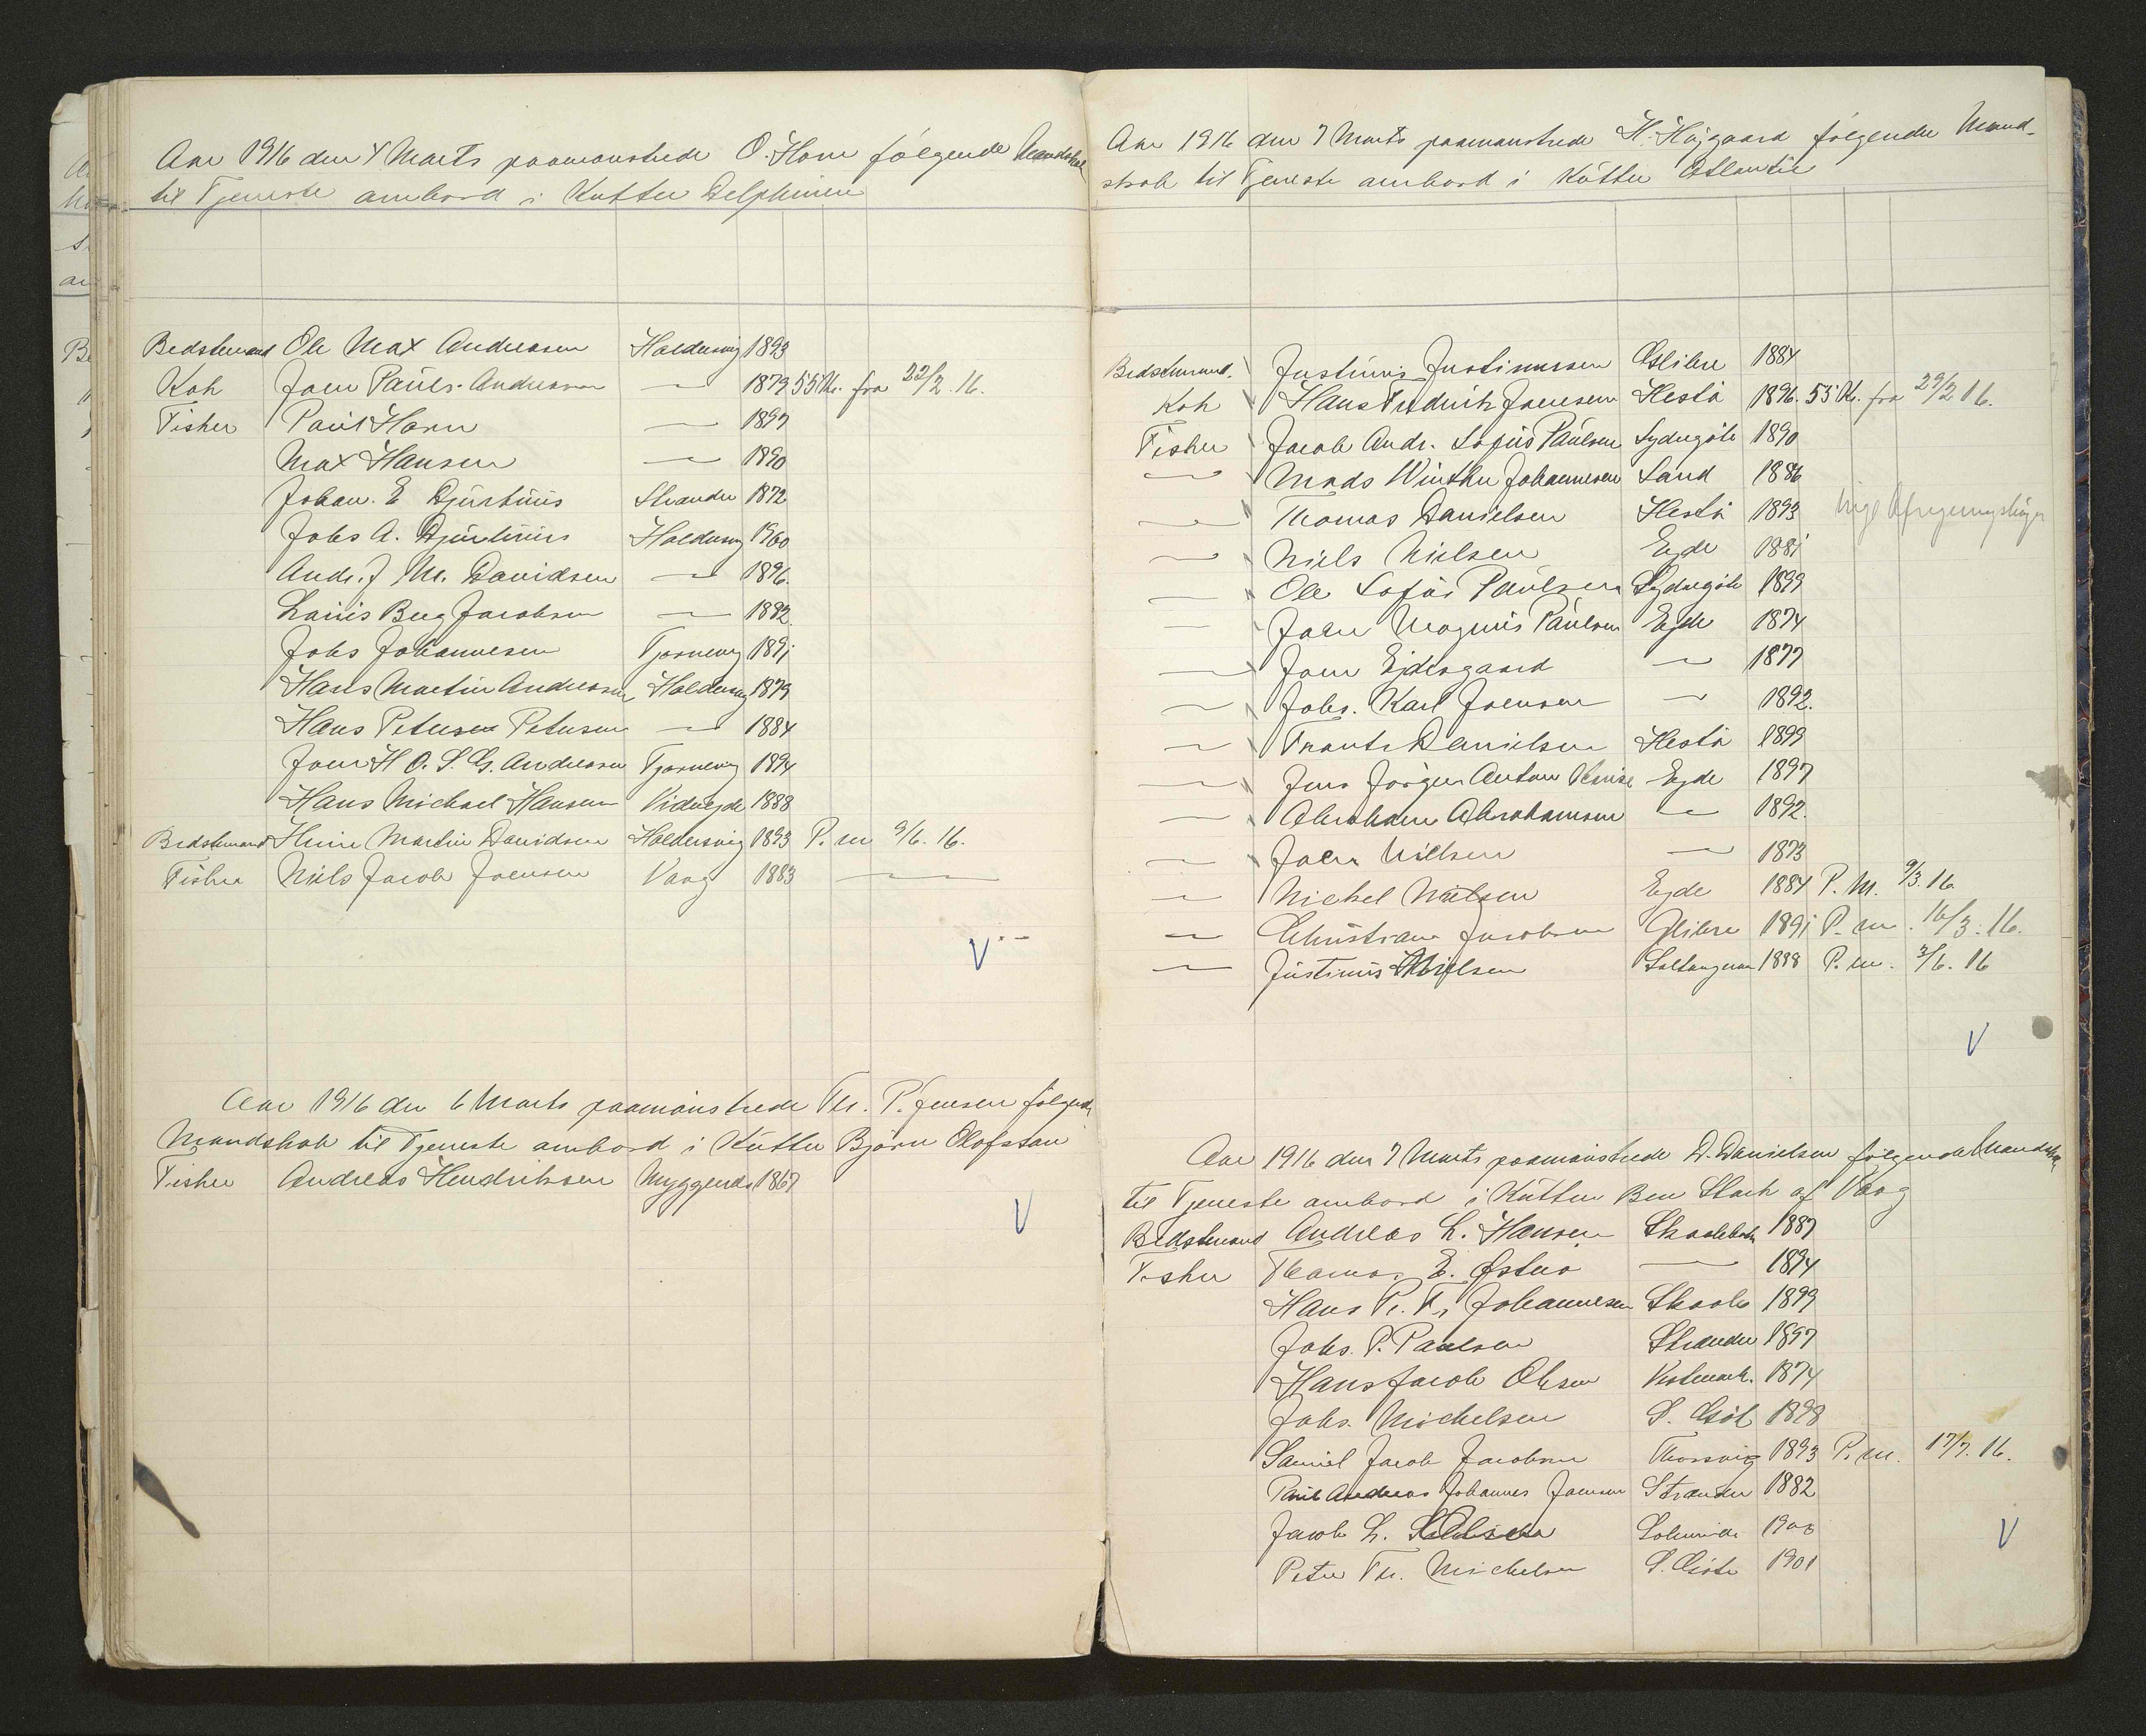 Aar 1916 den 4 Marts paamønstrede O. Horn følgende Mandskab
til Tjeneste ombord i Kutter Delphinen
Bedstemand Ole Max Andreasen Haldersvig 1893
Kok Joen Pauls. Andreasen — 1879 55 Kr. fra 22/2. 16.
Fisker Paul Horn — 1897
Max Hansen — 1890
Johan. E Djurhuus Strander 1872
Johs A. Djurhuus Haldersvig 1900
Andr. J M. Davidsen — 1896.
Louis Berg Jacobsen — 1892.
Johs Johannesen Tjørnevig 1891
Hans Martin Andreasen Haldersvig 1879
Hans Petersen Petersen — 1884
Joen H O. S. G. Andreasen Tjørnevig 1894
Hans Michael Hansen Videjde 1888
Bedstemand Heine Martin Davidsen Haldersvig 1893 P. m 9/6. 16.
Fisker Niels Jacob Joensen Vaag 1883 —
V
Aar 1916 den 6 Marts paamønstrede Th. P. Jensen følgende
Mandskab til Tjeneste ombord i Kutter Bjørn Olafsson
Fisker Andreas Hendriksen Myggenæs 1867
V
Aar 1916 den 7 Marts paamønstrede H. Højgaard følgende Mand-
skab til Tjeneste ombord i Kutter Atlantic
Bedstemand. Justinus Justinussen Glibre 1884
Kok Hans Fredrik Joensen Hestø 1896. 55 Kr. fra 29/2 16.
Fisker Jacob Andr. Sofus Paulsen Sydregøte 1890
— Mads Winther Johannesen Sand 1886
— Thomas Danielsen Hestø 1893
— Niels Nielsen Ejde 1881
— Ole Sofus Paulsen Sydregøte 1899
— Joen Magnus Paulsen Ejde 1874
— Joen Ejdesgaard — 1877
— Johs. Karl Joensen — 1892.
— Frants Danielsen Hestø 1899
— Jens Jørgen Anton Ejde 1897
— Abraham Abrahamsen — 1892.
— Joen Nielsen — 1873
— Michel Nielsen Ejde 1884 P. M. 9/3. 16.
— Christian Jacobsen Glibre 1891 P. m. 16/3. 16.
— Justinus Nielsen Saltangerum 1898 P. m. 3/6. 16
V
Aar 1916 den 7 Marts paamønstrede D. Danielsen følgende Mandskab
til Tjeneste ombord i Kutter Ben Stack af Vaag
Bedstemand Andreas L. Hansen 1887
Fisker Thomas E. Østerø — 1894
Hans P. Fr Johannesen Skaale 1899
Johs. P. Paulsen Strander 1897
Hans Jacob Olsen Vestmanh. 1874
Johs. Michelsen S. Gøte 1898
Samuel Jacob Jacobsen Thorsvig 1893 P. m. 17/7. 16.
Paul Andreas Johannes Joensen Strander 1882
Jacob L. Solmunde 1900
V
Peter Th. Michelsen S. Gøte 1901